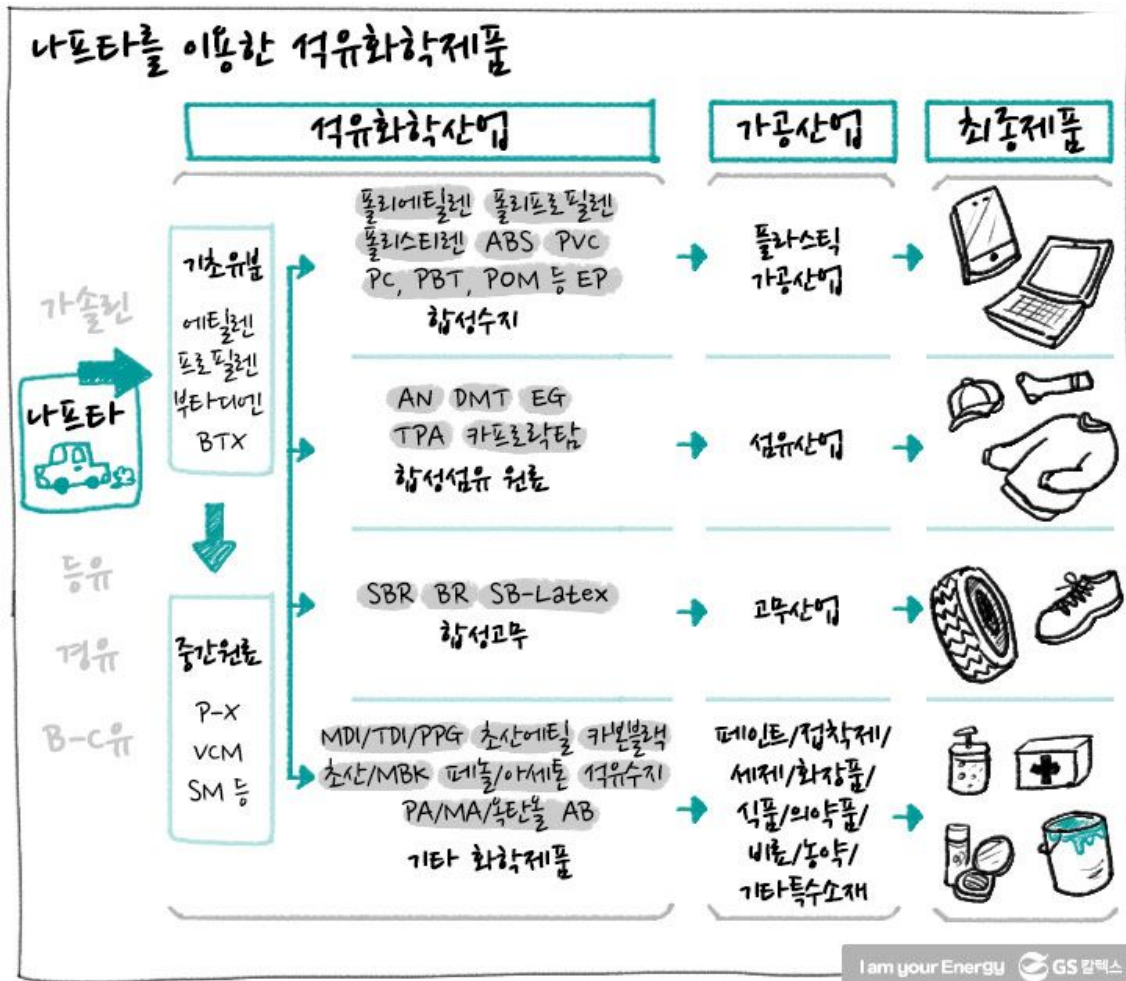 나프타를 이용한 석유화학제품
석유화학산업
가공산업
최종제품
가솔린
나프타
등유
경유
B-C유
기초유분
에틸렌
프로필렌
부타디엔
BTX
중간원료
P-X
VCM
SM 등
폴리에틸렌 폴리프로필렌
폴리스티렌 ABS PVC
PC, PBT, POM 등 EP
합성수지
플라스틱
가공산업
AN DMT EG
TPA 카프로락탐
합성섬유 원료
섬유산업
SBR BR SB-Latex
합성고무
고무산업
MDI/TDI/PPG 초산에틸 카본블랙
초산/MBK 페놀/아세톤 석유수지
PA/MA/옥탄올 AB
기타 화학제품
페인트/접착제/
세제/화장품/
식품/의약품/
비료/농약/
기타특수소재
I am your Energy GS 칼텍스